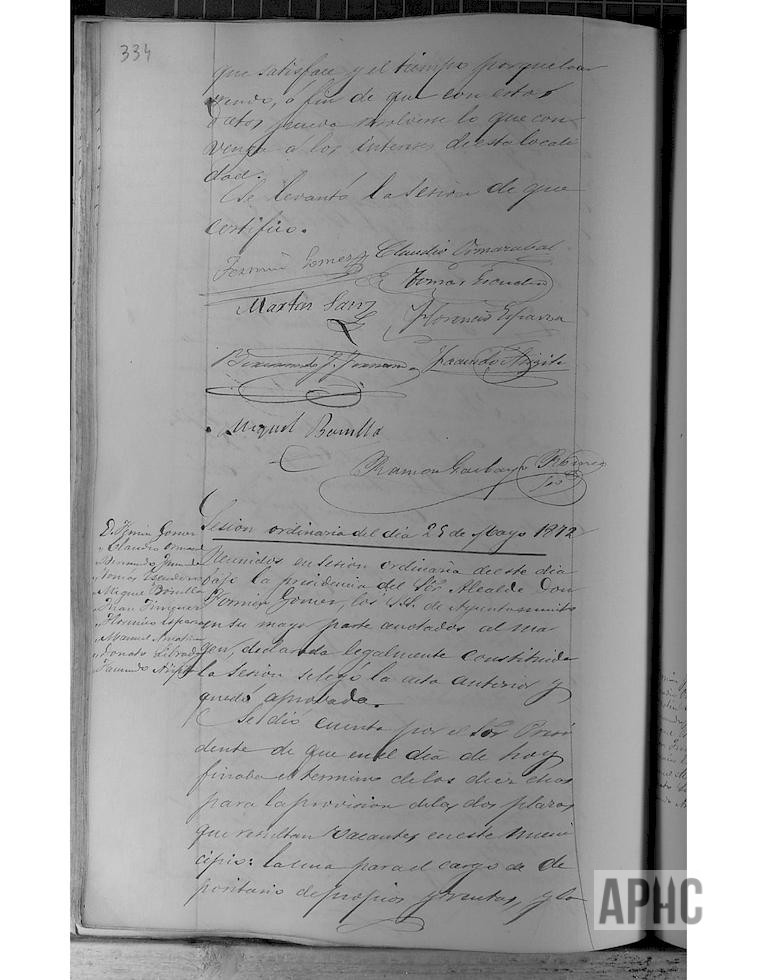 334
que satisface y el tiempo porque loar
riendo, a fin de que con estos
datos pueda resolverse lo que con
venga a los intereses de esta locali
dad.
Se levantó la sesion de que
certifico.
Fermin Gomez Claudio Ormazabal
Tomas Escudero
Martin Sanz
Florencio Esparza
Facundo
Miguel Bonilla
Ramon Garbayo
Sesion ordinaria del dia 25 de Mayo 1872
D. Fermin Gomez
" Claudio
" Bernardo
" Tomas Escudero
" Miguel Bonilla
" Juan Jimenez
" Florencio Esparza
" Manuel
" Donato Librada
" Facundo
Reunidos en sesion ordinaria de este dia
bajo la presidencia del Sor. Alcalde Don
Fermin Gomez, los SS. de Ayuntamiento
en su mayor parte anotados al mar
gen, declarada legalmente constituida
la sesion se leyó la acta anterior y
quedó aprobada.
Se dió cuenta por el Sor Presi
dente de que en el dia de hoy
finaba el termino de los diez dias
para la provision de las dos plazas
que resultan vacantes en este muni
cipio: la una para el cargo de de
positario de propios y rentas, y la
APHC